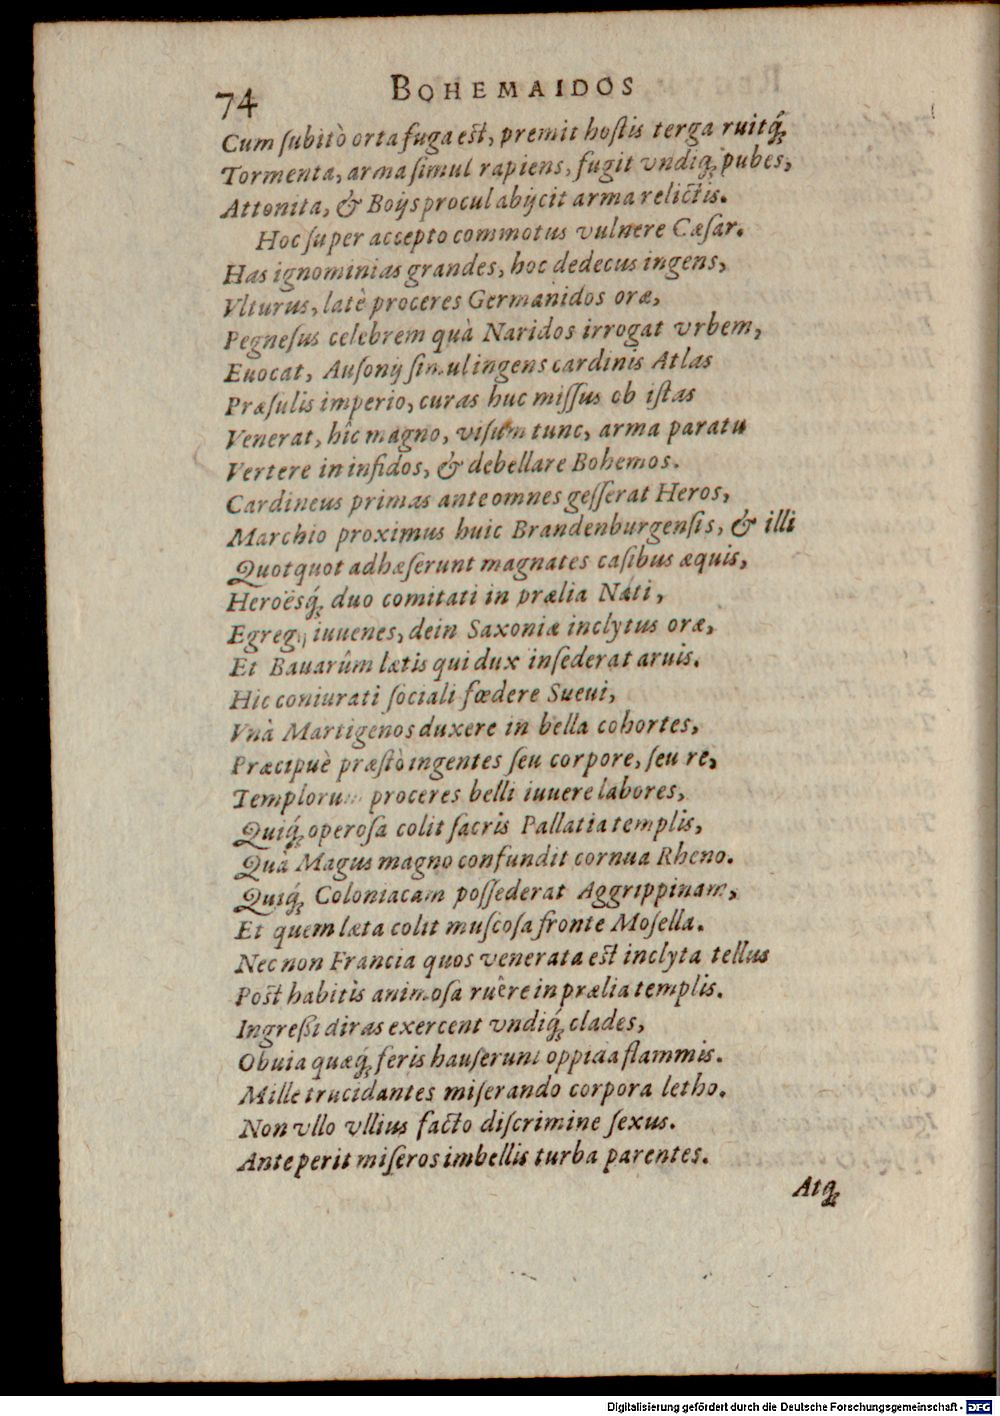 74 BOHEMAIDOS
Cum ſubitò orta fuga eſt, premit hoſtis terga ruitq́;
Tormenta, arma ſimul rapiens, fugit vndiq; pubes,
Attonita, & Boijs procul abijcit arma relictis.
Hoc ſuper accepto commotus vulnere Cæſar.
Has ignominias grandes, hoc dedecus ingens,
Vlturus, latè proceres Germanidos oræ,
Pegneſus celebrem quà Naridos irrogat vrbem,
Euocat, Auſonij ſimul ingens cardinis Atlas
Præſulis imperio, curas huc miſſus ob iſtas
Venerat, hîc magno, viſum tunc, arma paratu
Vertere in infidos, & debellare Bohemos.
Cardineus primas ante omnes geſſerat Heros,
Marchio proximus huic Brandenburgenſis, & illi
Quotquot adhæſerunt magnates caſibus æquis,
Heroësq́; duo comitati in prælia Náti,
Egregij iuuenes, dein Saxoniæ inclytus oræ,
Et Bauarûm lætis qui dux inſederat aruis.
Hic coniurati ſociali fœdere Sueui,
Vnà Martigenos duxere in bella cohortes,
Præcipuè præſtò ingentes ſeu corpore, ſeu re,
Templorum proceres belli iuuere labores,
Quiq́; operoſa colit ſacris Pallatia templis,
Quà Magus magno confundit cornua Rheno.
Quiq́; Coloniacam poſſederat Aggrippinam,
Et quem læta colit muſcoſa fronte Moſella.
Nec non Francia quos venerata eſt inclyta tellus
Poſt habitis animoſa ruêre in prælia templis.
Ingreßi diras exercent vndiq́; clades,
Obuia quæq́; feris hauſerunt oppida flammis.
Mille trucidantes miſerando corpora letho.
Non vllo vllius facto diſcrimine ſexus.
Ante perit miſeros imbellis turba parentes.
Atq;
Digitalisierung gefördert durch die Deutsche Forschungsgemeinschaft - DFG